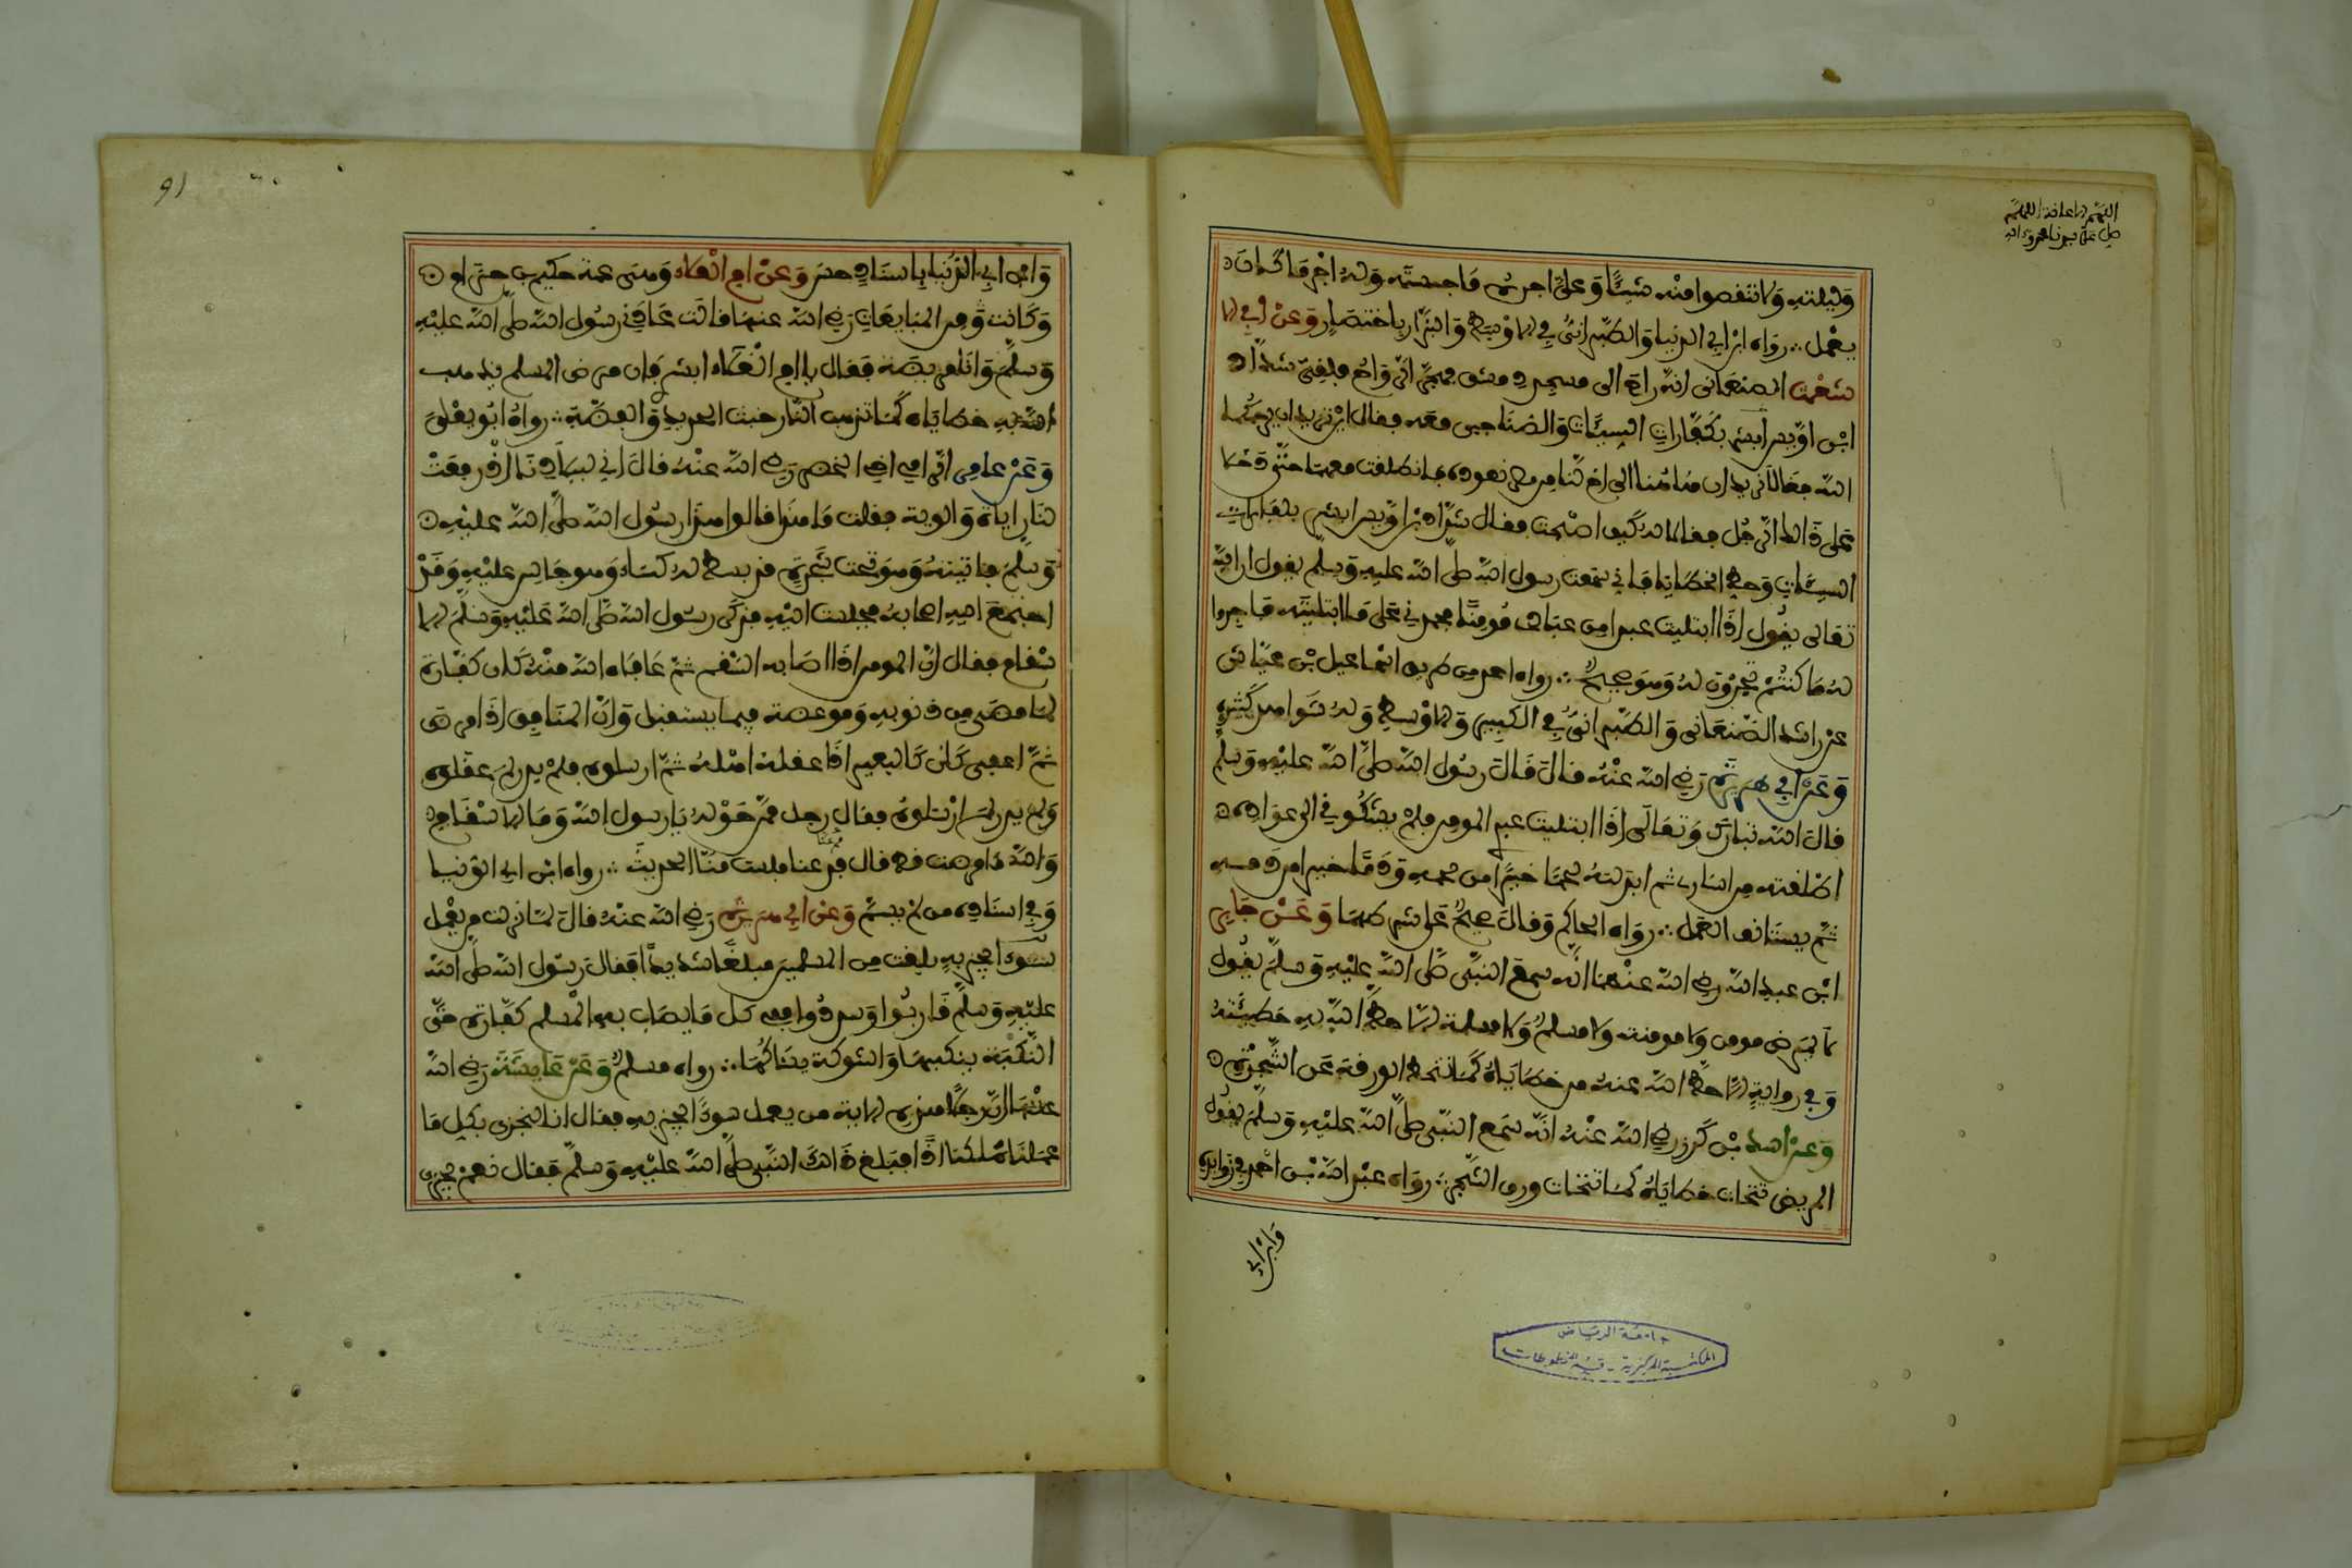 وليلته ولا تنقصوا منه شيئا وعلي اجره ما حبسته وله اجر ما كان
يعمل رواه ابن ابي الدنيا والطبراني في الاوسط والبزار باختصار وعن ابي الا
شعث الصنعاني انه راح الى مسجد دمشق
ابن اوس ابشر بكفارات السيئات
الله فقالا نريد هاهنا الى اخ لنا من مضر نعوده فانطلقت معهما حتى دخلا
على ذالك الرجل فقالا له كيف اصبحت فقال شداد بن اوس ابشر بكفارات
السيئات وحط الخطايا فاني سمعت رسول الله صلى الله عليه وسلم يقول ان الله
تعالى يقول اذا ابتليت عبدا من عبادي مومنا فحمدني على ما ابتليته فاجروا
له ما كنتم تجرون له وهو صحيح رواه احمد من طريق اسماعيل بن عياش
عن راشد الصنعاني والطبراني في الكبير والاوسط وله شواهد كثيرة
وعن ابي هريرة رضي الله عنه قال قال رسول الله صلى الله عليه وسلم
قال الله تبارك وتعالى اذا ابتليت عبدي المومن فلم يشكوني الى عواده
اطلقته من اساري ثم ابدلته لحما خيرا من لحمه ودما خيرا من دمه
ثم يستانف العمل رواه الحاكم وقال صحيح على شرطهما وعن جابر
ابن عبد الله رضي الله عنهما انه سمع النبي صلى الله عليه وسلم يقول
ما يمرض مومن ولا مومنة ولا مسلم ولا مسلمة الا حط الله به خطيئته
وفي رواية الا حط الله عنه من خطاياه كما تنحط الورقة عن الشجرة
وعن اسد بن كرز رضي الله عنه انه سمع النبي صلى الله عليه وسلم يقول
المريض تتحات خطاياه كما يتحات ورق الشجر رواه عبد الله بن احمد في زوايده
وابن ابي
جامعة الرياض
المكتبة المركزية - قسم المخطوطات
91
وابن ابي الدنيا باسناد حسن وعن ام العلاء وهي عمة حكيم بن حزام
وكانت من المبايعات رضي الله عنها قالت عادني رسول الله صلى الله عليه
وسلم وانا مريضة فقال يا ام العلاء ابشري فان مرض المسلم يذهب
الله به خطاياه كما تذهب النار خبث الحديد والفضة رواه ابو
وعن عامر الرامي اخي الخضر رضي الله عنه قال اني لببلادنا اذ رفعت
لنا رايات والوية فقلت ما هذا قالوا هذا رسول الله صلى الله عليه
وسلم فاتيته وهو تحت شجرة قد بسط له كساء وهو جالس عليه وقد
اجتمع اليه اصحابه فجلست اليه فذكر رسول الله صلى الله عليه وسلم الا
سقام فقال ان المومن اذا اصابه السقم ثم عافاه الله منه كان كفارة
لما مضى من ذنوبه وموعظة فيما يستقبل وان المنافق اذا مرض
ثم اعفي كان كالبعير اذا عقله اهله ثم ارسلوه فلم يدر لم عقلوه
ولم يدر لم ارسلوه فقال رجل ممن حوله يا رسول الله وما الاسقام
والله ما مرضت قط قال قم عنا فلست منا الحديث رواه ابن ابي الدنيا
وفي اسناده من لم يسم وعن ابي هريرة رضي الله عنه قال لما نزلت من يعمل
سوءا يجز به بلغت من المسلمين مبلغا شديدا فقال رسول الله صلى الله
عليه وسلم قاربوا وسددوا ففي كل ما يصاب به المسلم كفارة حتى
النكبة ينكبها والشوكة يشاكها رواه مسلم وعن عايشة رضي الله
عنها ان رجلا هذه الاية من يعمل سوءا يجز به فقال انا لنجزى بكل ما
عملنا هلكنا اذا فبلغ ذالك النبي صلى الله عليه وسلم فقال نعم يجزى